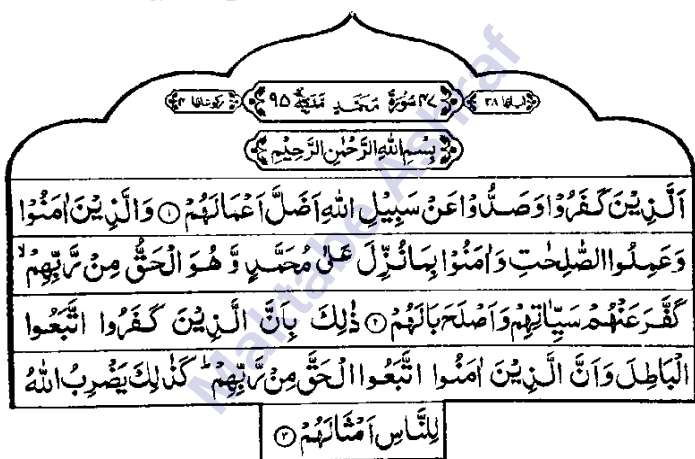 اٰيَاتُهَا ٣٨ ٤٧ سُوْرَةُ مُحَمَّدٍ مَّدَنِيَّةٌ ٩٥ رُكُوْعَاتُهَا ٤
بِسْمِ اللّٰهِ الرَّحْمٰنِ الرَّحِيْمِ
اَلَّذِيْنَ كَفَرُوْا وَصَدُّوْا عَنْ سَبِيْلِ اللّٰهِ اَضَلَّ اَعْمَالَهُمْ ۝١ وَالَّذِيْنَ اٰمَنُوْا
وَعَمِلُوا الصّٰلِحٰتِ وَاٰمَنُوْا بِمَا نُزِّلَ عَلٰى مُحَمَّدٍ وَّهُوَ الْحَقُّ مِنْ رَّبِّهِمْ ۙ
كَفَّرَ عَنْهُمْ سَيِّاٰتِهِمْ وَاَصْلَحَ بَالَهُمْ ۝٢ ذٰلِكَ بِاَنَّ الَّذِيْنَ كَفَرُوا اتَّبَعُوا
الْبَاطِلَ وَاَنَّ الَّذِيْنَ اٰمَنُوا اتَّبَعُوا الْحَقَّ مِنْ رَّبِّهِمْ ؕ كَذٰلِكَ يَضْرِبُ اللّٰهُ
لِلنَّاسِ اَمْثَالَهُمْ ۝٣
Maktabe Ashraf